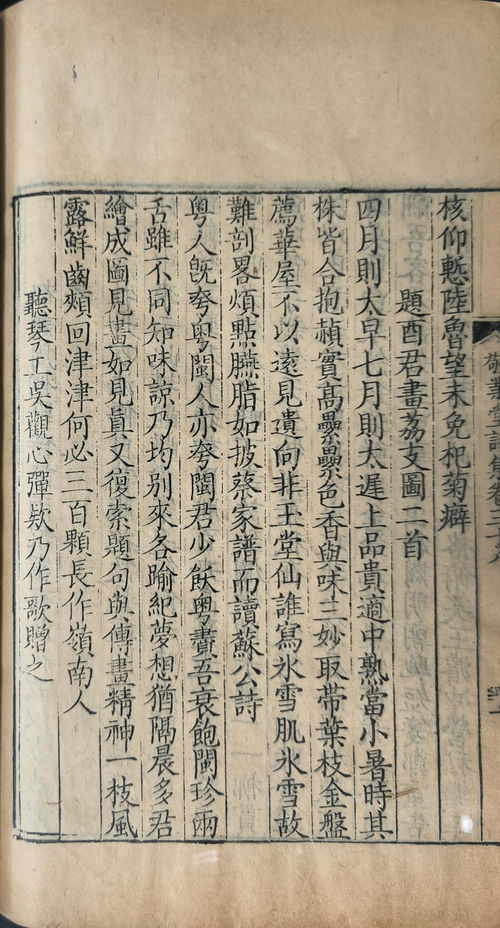 核仰慙陸魯望未免杞菊癖
題酉君畫荔支圖二首
四月則太早七月則太遲上品貴適中熟當小暑時其
株皆合抱赬實高纍纍色香與味三妙取帶葉枝金盤
薦華屋不以遠見遺向非玉堂仙誰寫氷雪肌氷雪故
難剖畧煩點臙脂如披蔡家譜而讀蘇公詩
粤人旣夸粤閩人亦夸閩君少飫粤賣吾衰飽閩珍兩
舌雖不同知味諒乃均别來各踰紀夢想猶隅晨多君
繪成圖見畫如見真又復索題句與傳畫精神一枝風
露鮮齒頰回津津何必三百顆長作嶺南人
聽琴工吳觀心彈欵乃作歌贈之